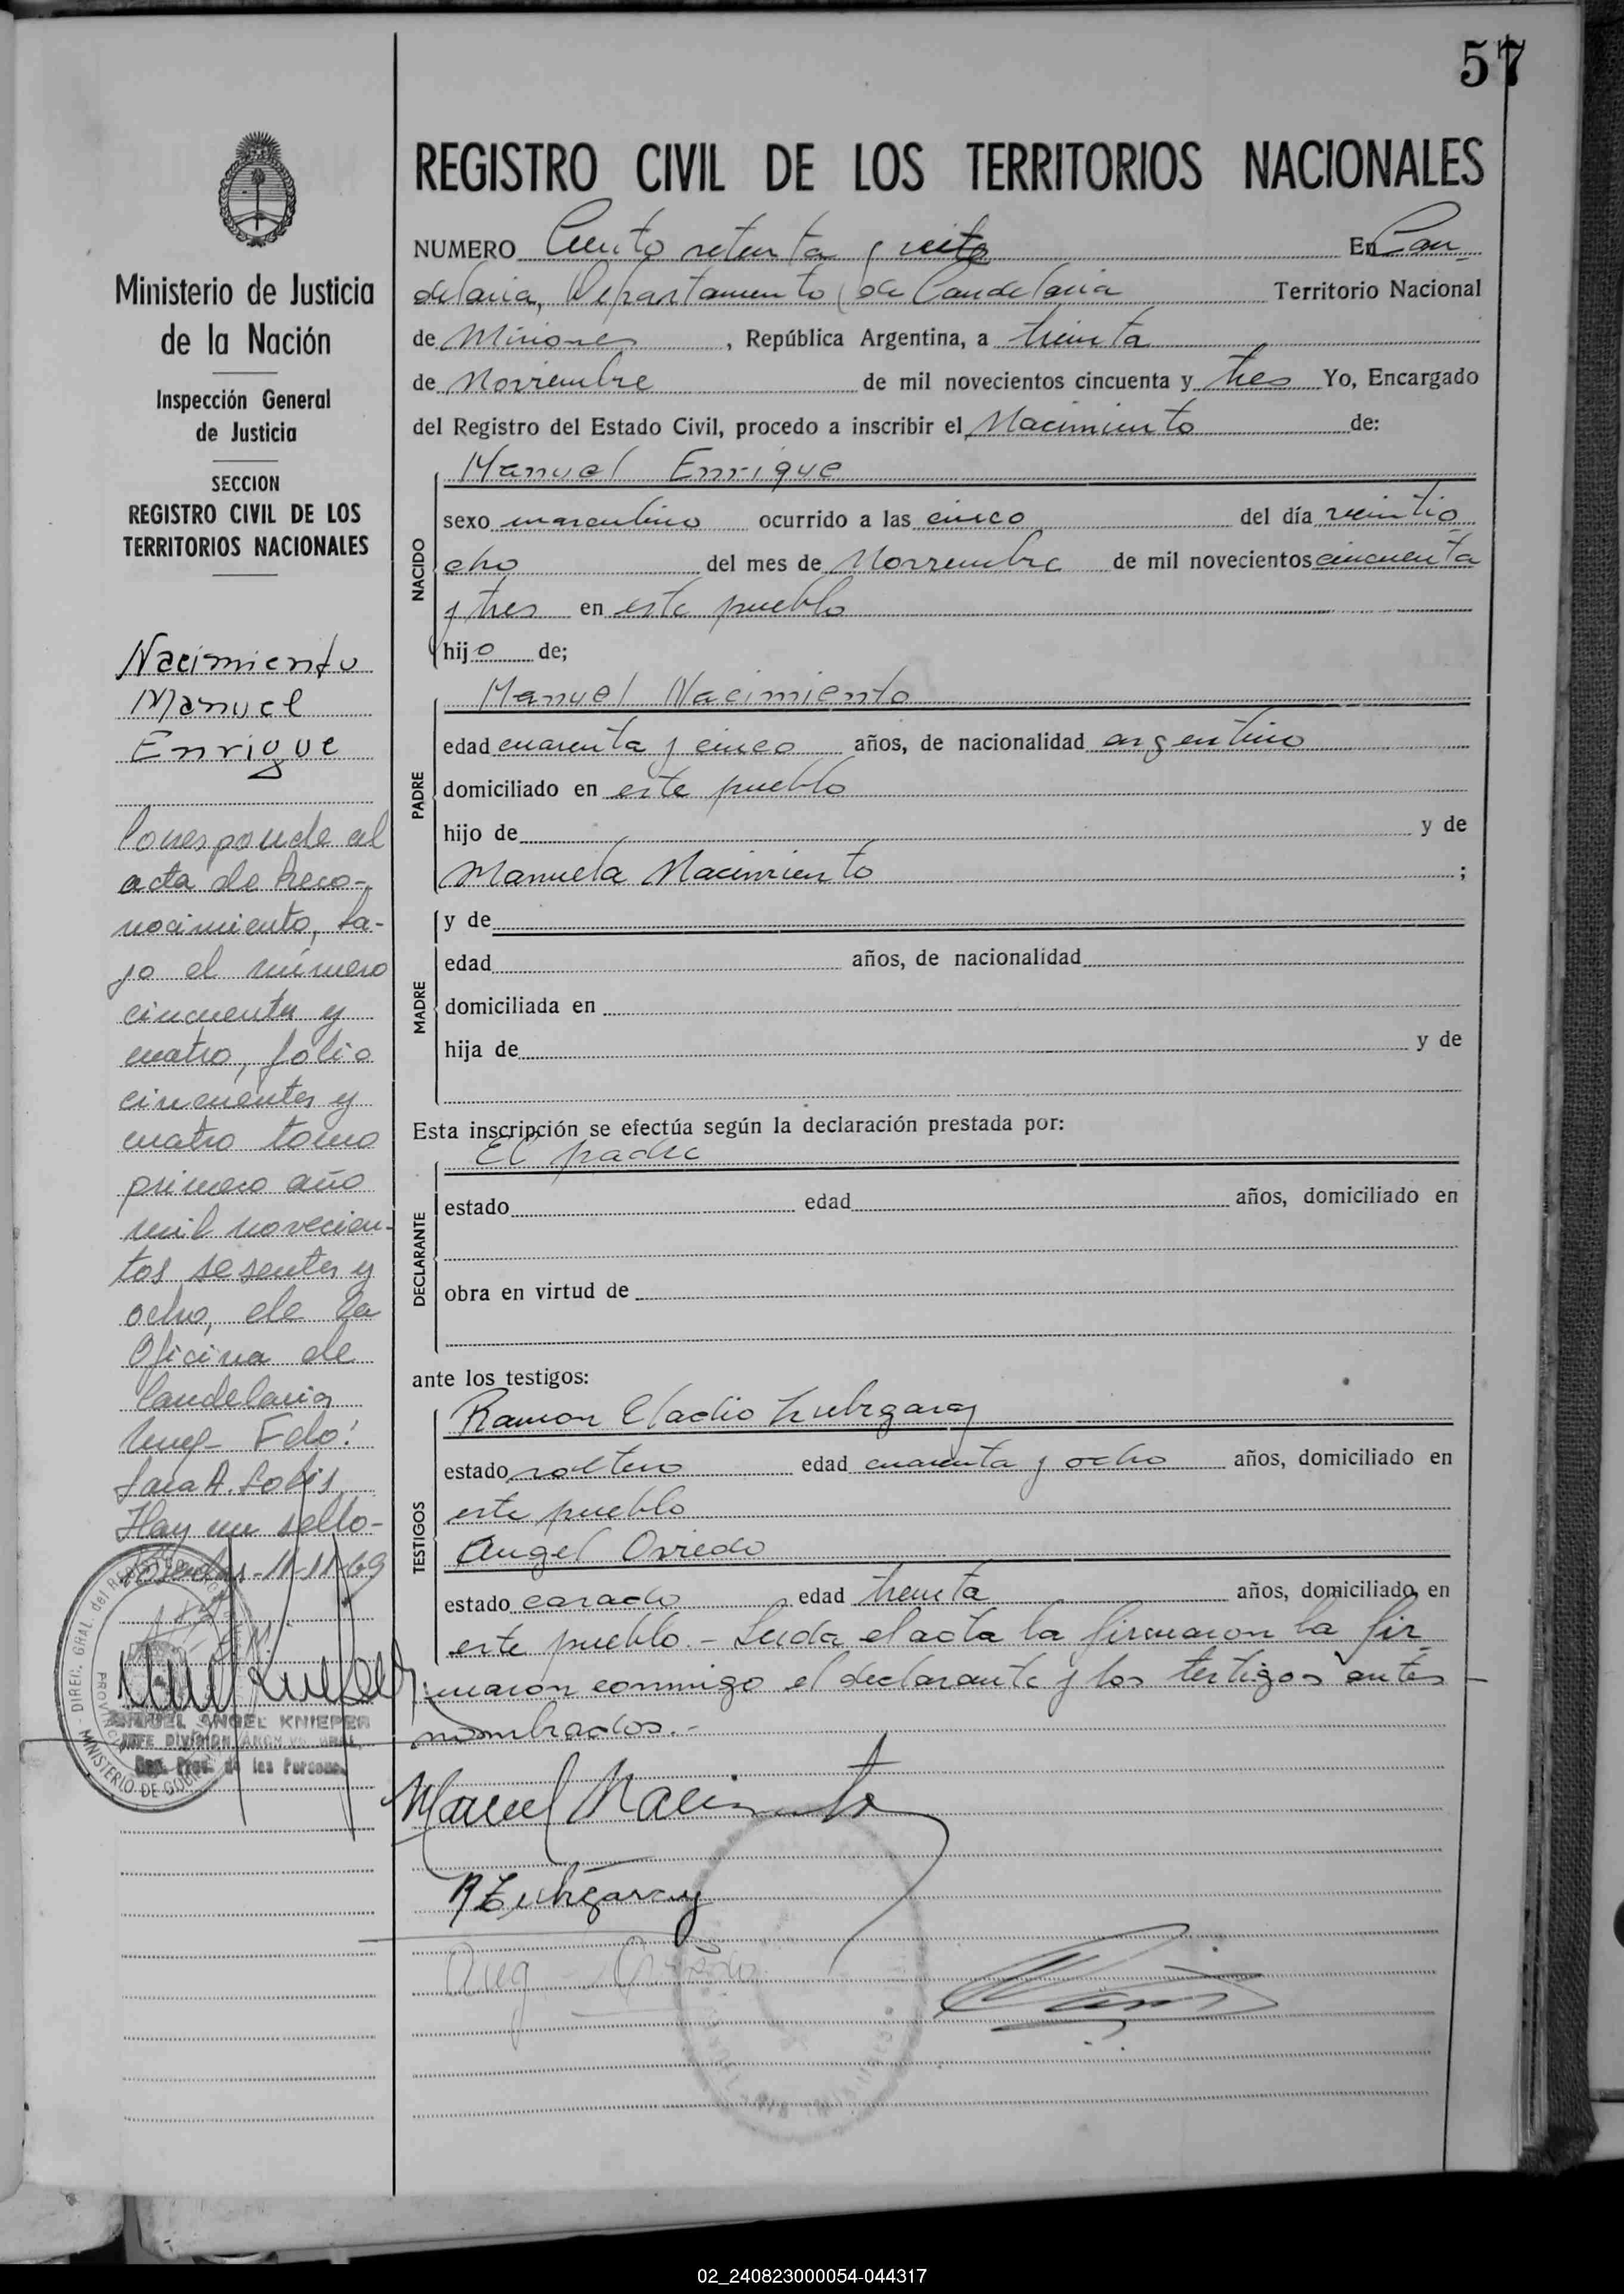 57
REGISTRO CIVIL DE LOS TERRITORIOS NACIONALES
NUMERO Ciento setenta y siete En Can-
delaria, Departamento de Candelaria Territorio Nacional
de Misiones, República Argentina, a treinta
de Noviembre de mil novecientos cincuenta y tres Yo, Encargado
del Registro del Estado Civil, procedo a inscribir el Nacimiento de:
NACIDO
Manuel Enrique
sexo masculino ocurrido a las cinco del día veintio
cho del mes de Noviembre de mil novecientos cincuenta
y tres en este pueblo
hijo de;
PADRE
Manuel Nacimiento
edad cuarenta y cinco años, de nacionalidad argentino
domiciliado en este pueblo
hijo de y de
Manuela Nacimiento ;
MADRE
y de
edad años, de nacionalidad
domiciliada en
hija de y de
Esta inscripción se efectúa según la declaración prestada por:
DECLARANTE
El padre
estado edad años, domiciliado en
obra en virtud de
ante los testigos:
TESTIGOS
Ramon Eladio
estado soltero edad cuarenta y ocho años, domiciliado en
este pueblo
Angel Oviedo
estado casado edad treinta años, domiciliado en
este pueblo.- Leida el acta la firmaron la fir-
maron conmigo el declarante y los testigos antes
nombrados.-
Manuel Nacimiento
Ministerio de Justicia
de la Nación
Inspección General
de Justicia
SECCION
REGISTRO CIVIL DE LOS
TERRITORIOS NACIONALES
Nacimiento
Manuel
Enrique
Corresponde al
acta de Reco-
nocimiento, ba-
jo el número
cincuenta y
cuatro, folio
cincuenta y
cuatro tomo
primero año
mil novecien-
tos sesenta y
ocho, de la
Oficina de
Candelaria
Fdo:
Sara A. Solis
Hay un sello-
Posadas -11-11-69
MIGUEL ANGEL KNIEPER
JEFE DIVISION ARCHIVO GRAL.
Reg. Prov. de las Personas
DIREC. GRAL. del REG.
MINISTERIO DE GOB
02_240823000054-044317